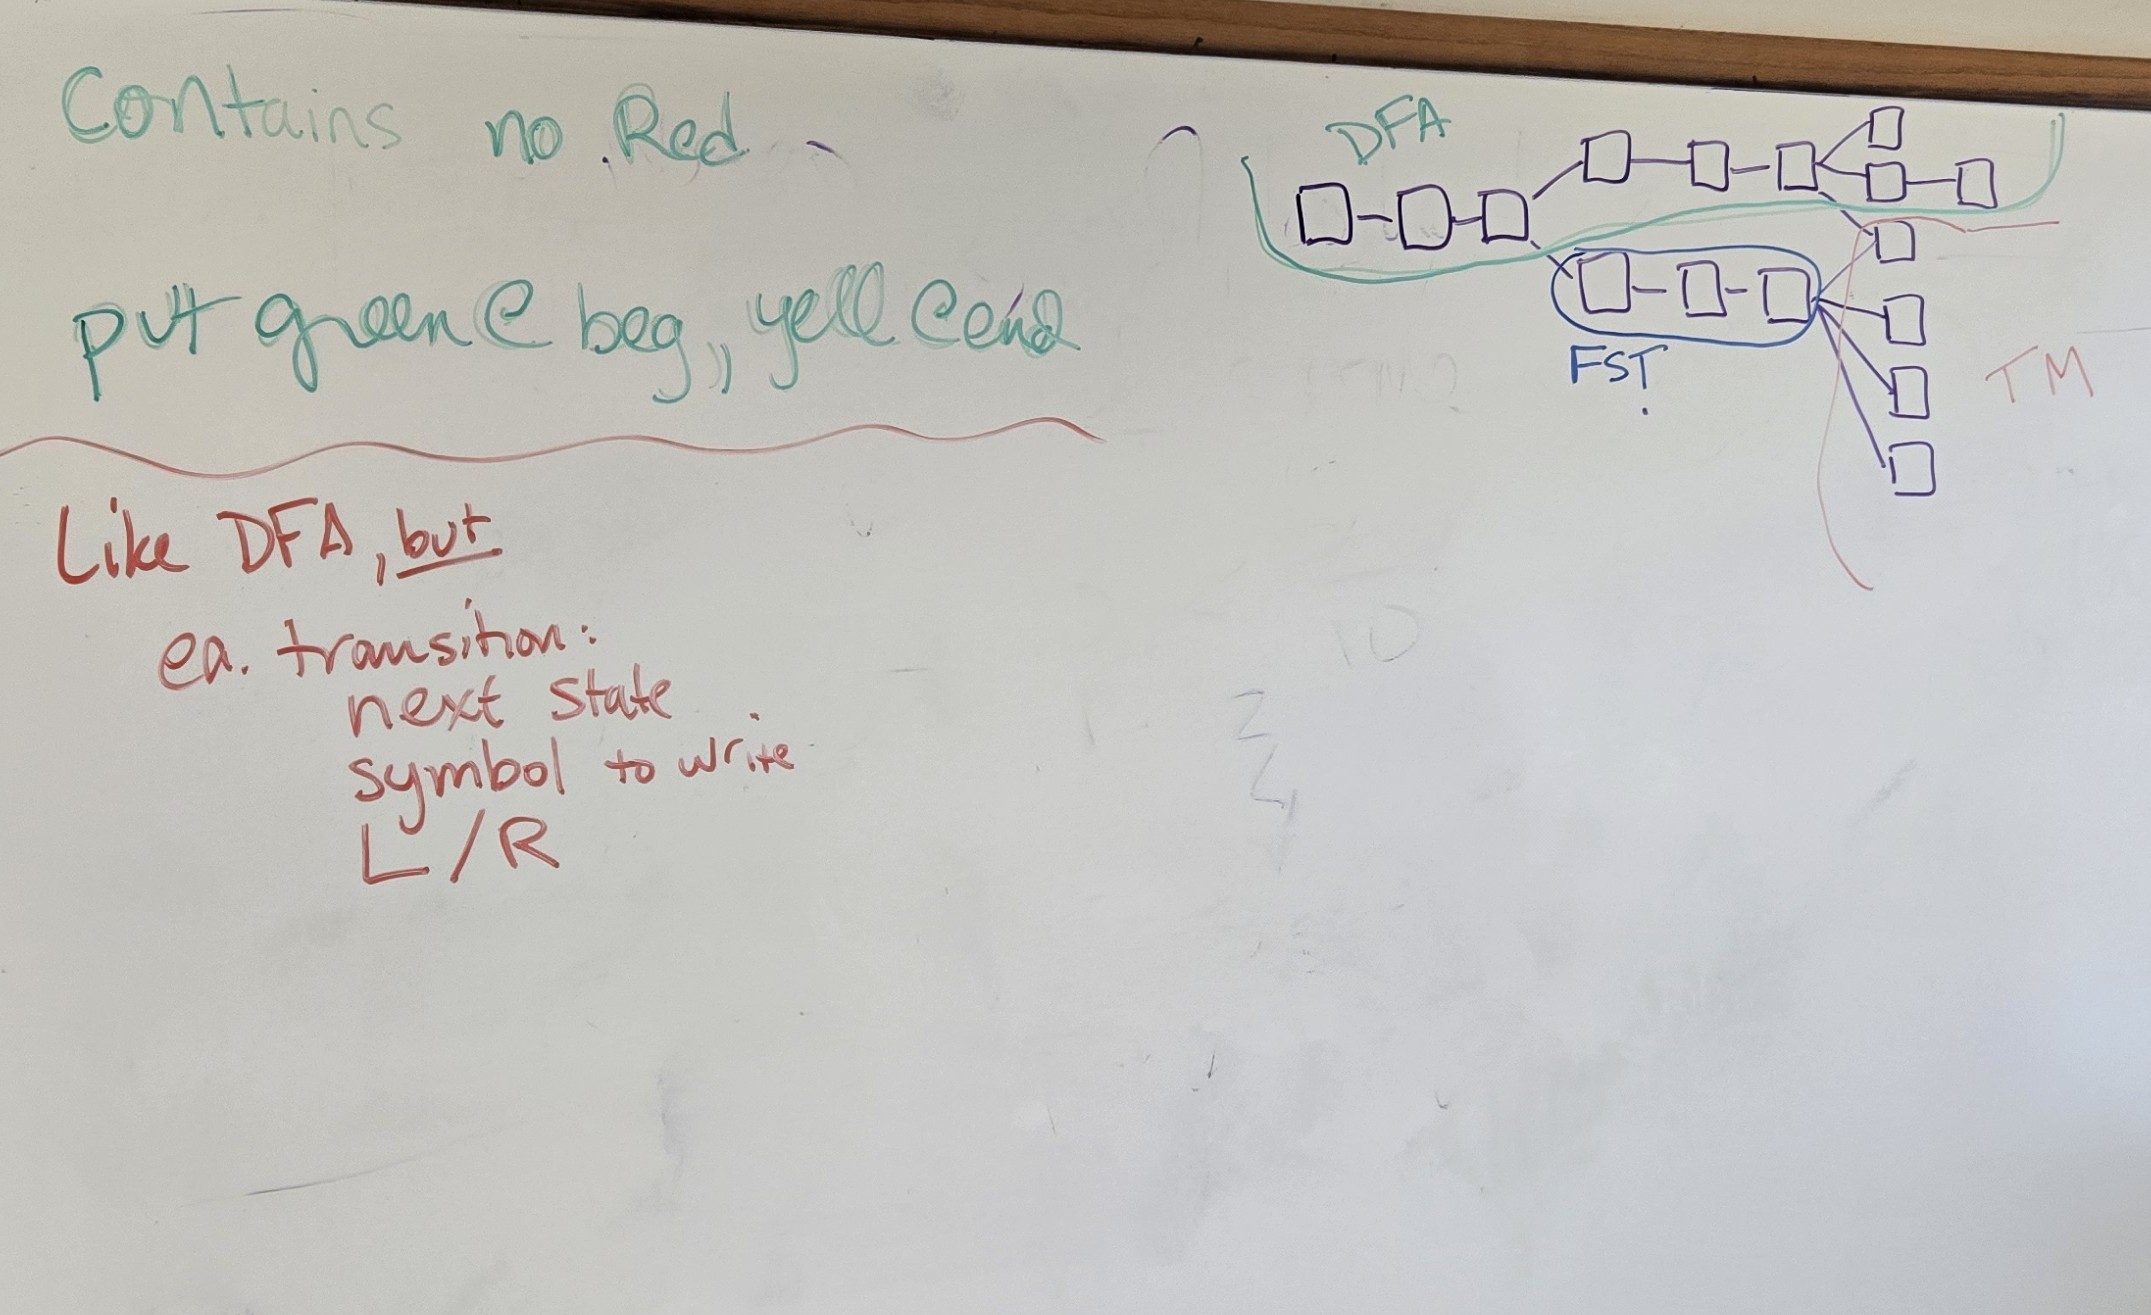 Contains no Red
put green @ beg, yell @ end
Like DFA, but
ea. transition:
next state
symbol to write
L/R
DFA
FST
TM